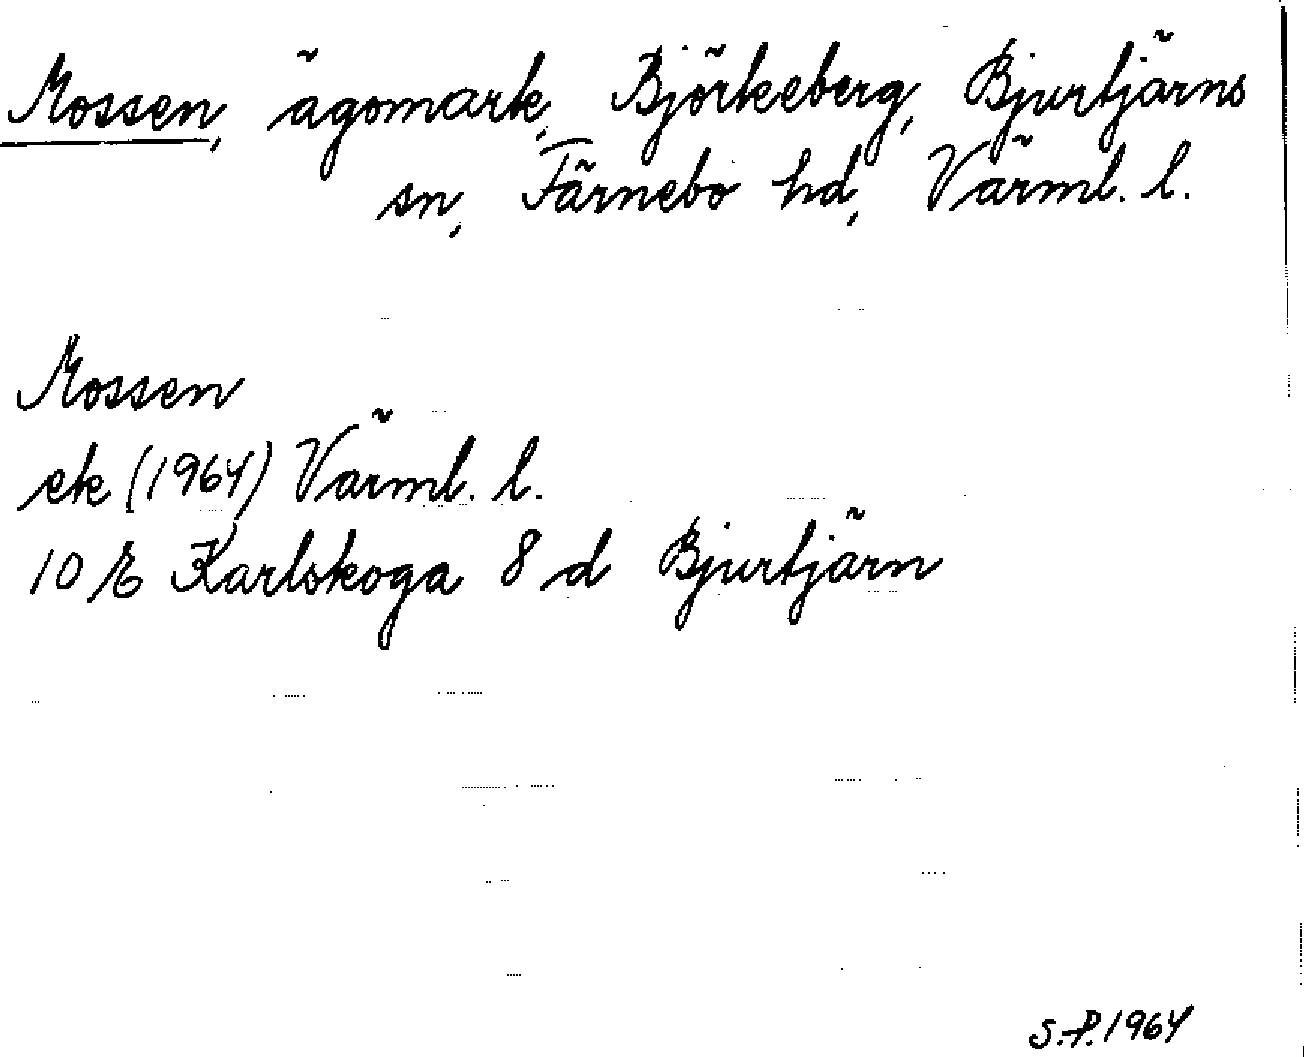 Mossen, ägomark, Björkeberg, Bjurtjärns
sn, Färnebo hd, Värml. l.
Mossen
ek (1964) Värml. l.
10 E Karlskoga 8 d Bjurtjärn
S.-P. 1964